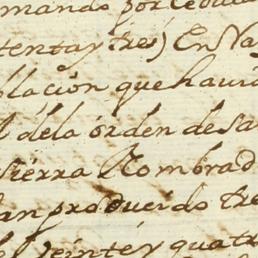 mando por cedula
tenta y tres) En Va
blacion que havia
l dela orden de Sa
sierra Nombrad
an producido tre
el veinte y quatr